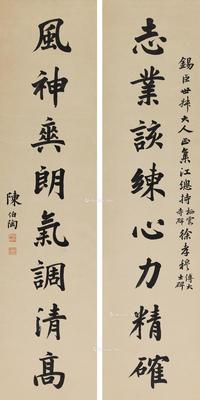 錫臣世大人正集江總持栖霞寺碑徐孝穆傅大士碑
志業該練心力精確
風神爽朗氣調清高
陳伯陶